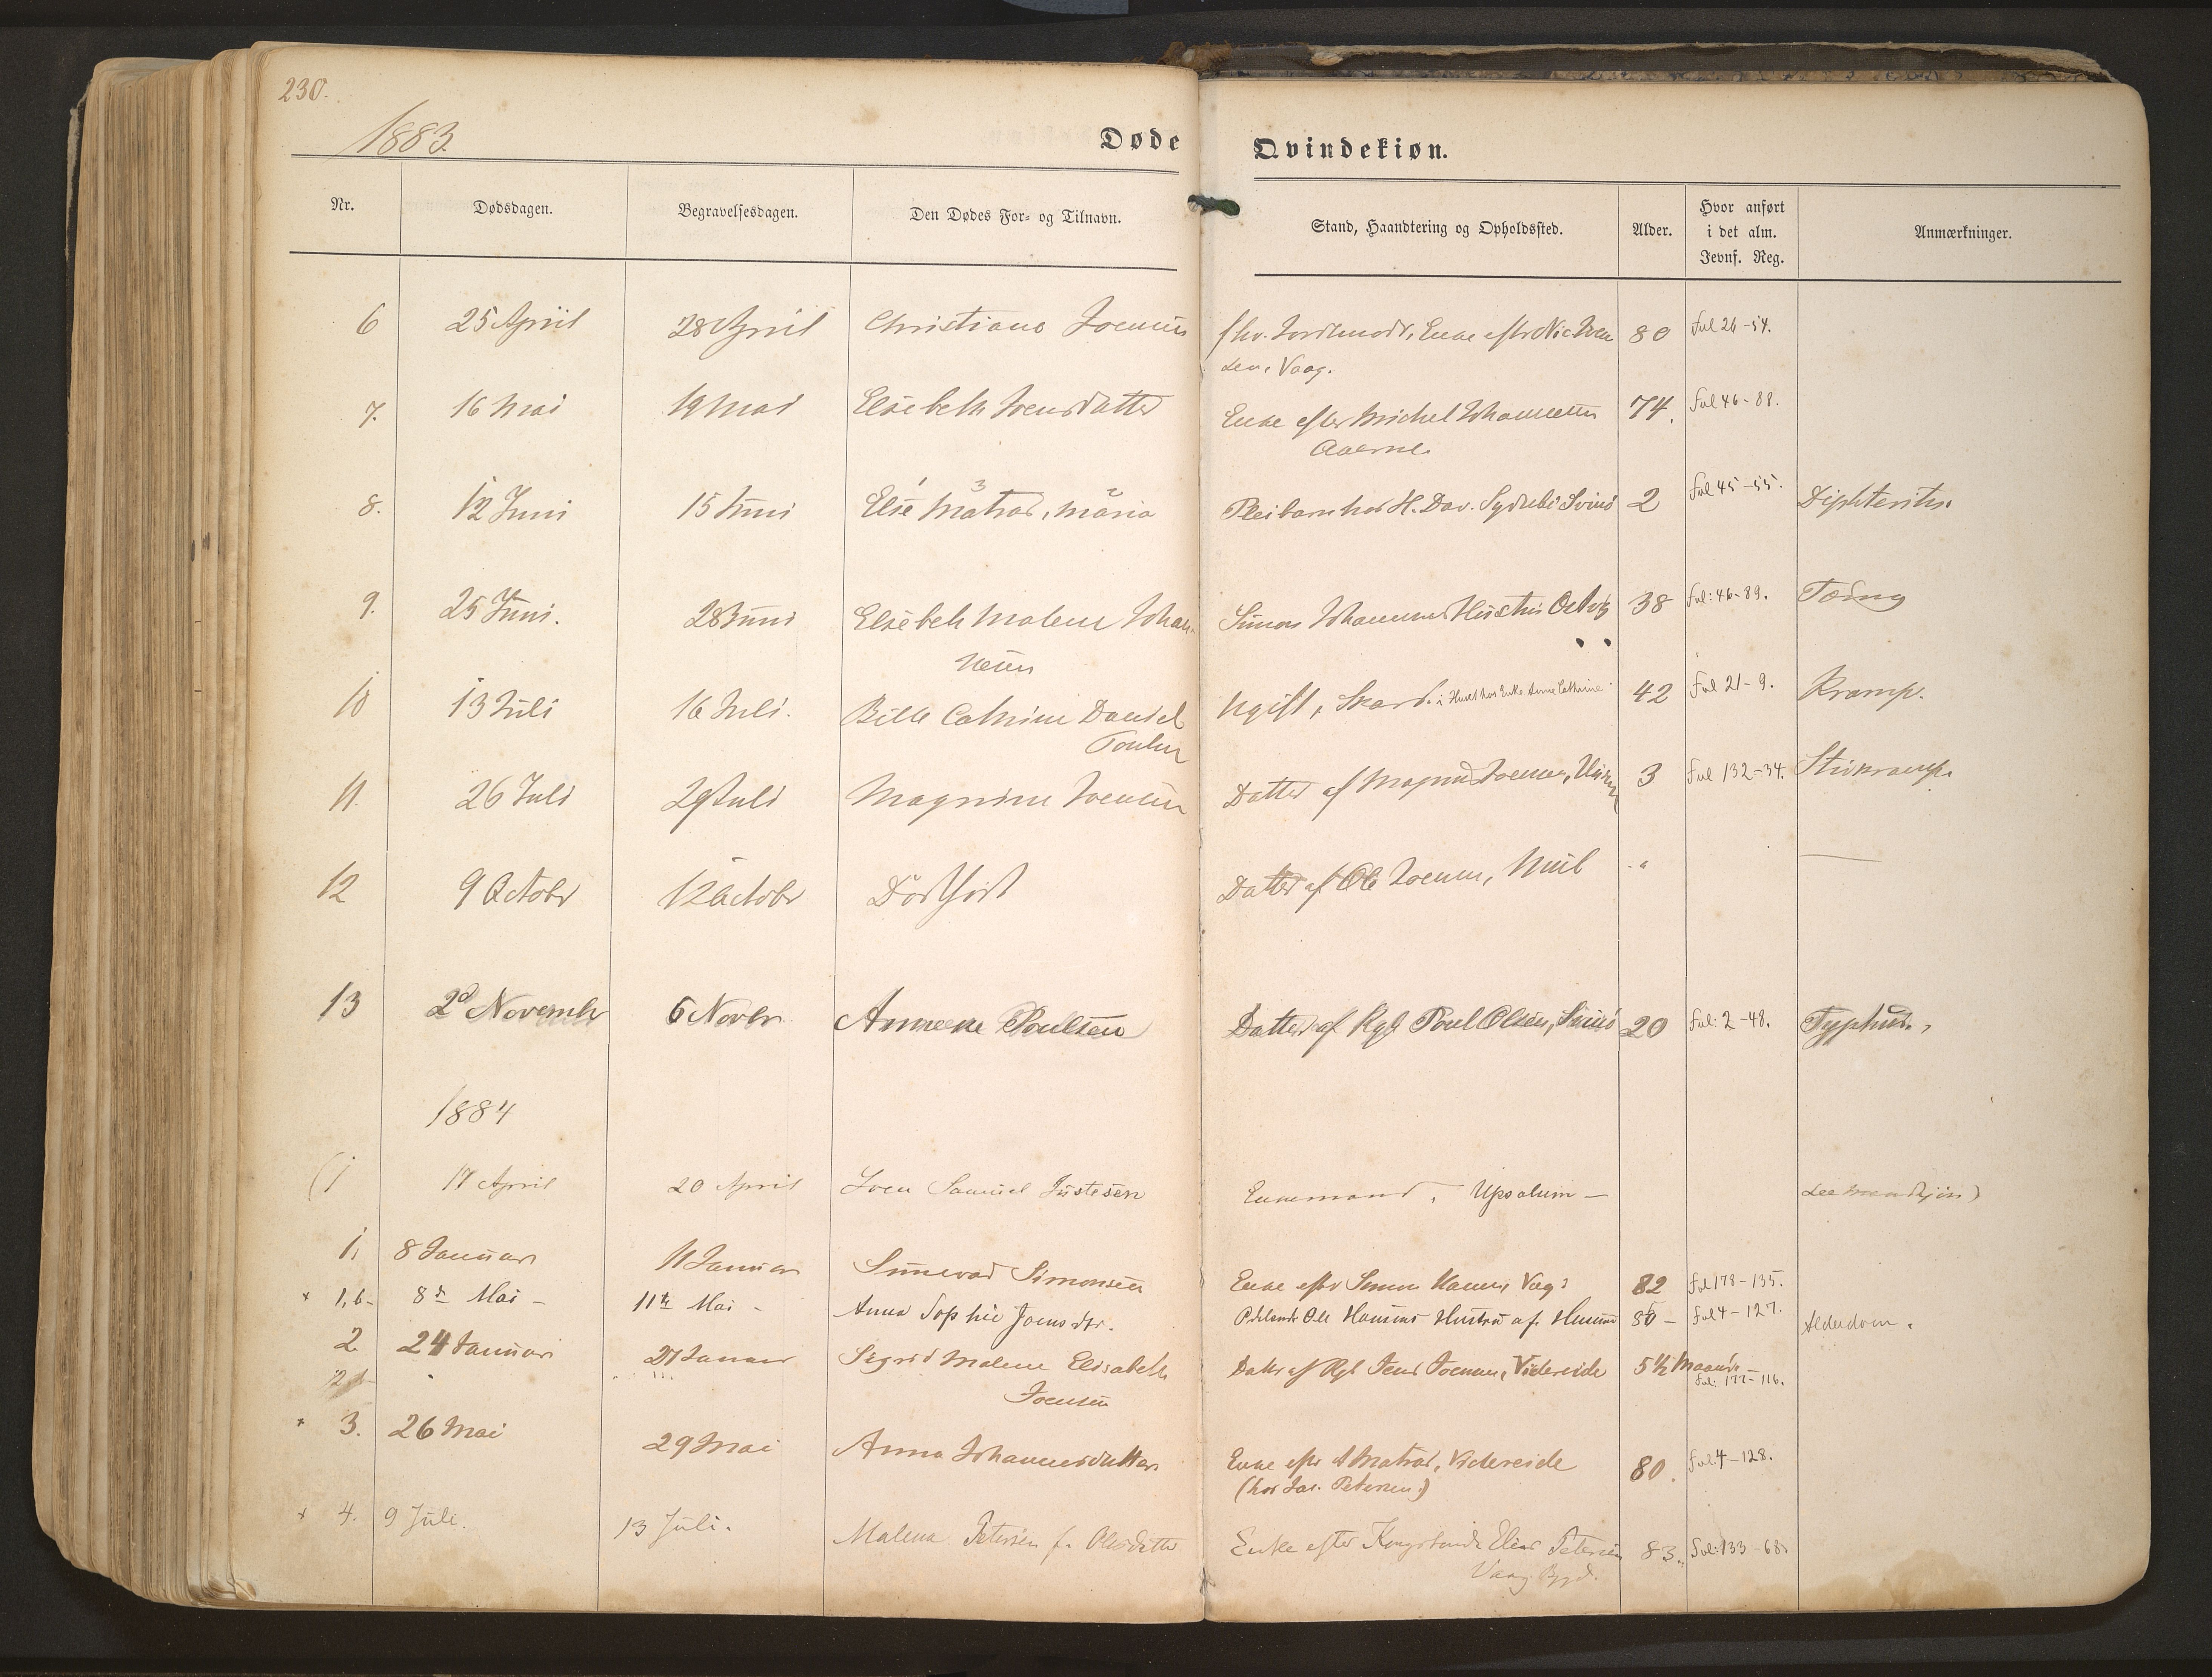 230.
1883.
Døde
Qvindekiøn.
Nr.
Dødsdagen.
Begravelsesdagen.
Den Dødes For- og Tilnavn.
Stand, Haandtering og Opholdssted.
Alder.
Hvor anført
i det alm.
Jevnf. Reg.
Anmærkninger.
6 25 April 28 April Christiane Joensen Enke eftr 80 fol 26-54.
Vaag.
7. 16 Mai 19 Mai Elsebeth Joensdatter Enke efter Michel Johannesen 74. fol 46-88.
8. 12 Juni 15 Juni Else Matras, Maria Pleibarn hos H. Dav. Svinö 2 fol 45-55. Diphteritis.
9. 25 Juni. 28 Juni Elsebeth Malene Johan- Simon Johannesens Hustru 38 fol: 46-89. Tæring
nesen
10 13 Juli 16 Juli. Bille Catrine Daniel Ugift, Skard. i Huset hos Enke Anne Cathrine 42 fol 21-9. Krampe.
Poulsen
11. 26 Juli 29 Juli Magnine Joensen Datter af Magnus Joensen, 3 fol 132-34. Stivkrampe.
12 9 Octobr 12 Octobr Dødfødt Datter af Ole Joensen, "
13 2d Novembr 6 Novbr. Annene Poulsen Datter af Kgf Poul Olsen, Svinö 20 fol: 2-48. Typhus.
1884
(1 17 April 20 April Joen Samuel Justesen Enkemand, Upsalum — see Mandkjön)
1. 8 Januar 11 Januar Sunevad Simonsen Enke eftr Simon Vaag 82 fol 178-135.
× 1,b- 8de Mai - 11te Mai - Anna Sophie Joensdtr. Ole Hansens Hustru af 86 - fol 4-127. Alderdom.
2. 24 Januar 27 Januar Sigrid Malene Elisabeth Datter af Kgf Jens Joensen, Videreide 5½ Maaned
Joensen fol: 177-116.
× 3. 26 Mai 29 Mai Anna Johannesdatter Enke eftr Matras, Videreide 80. fol: 4-128.
(hos Jac. Petersen)
× 4. 9 Juli. 13 Juli. Malena Petersen f. Olesdatter Enke efter Kongsbonde Elias Petersen 83. fol: 133-68.
Vaag Bygd.